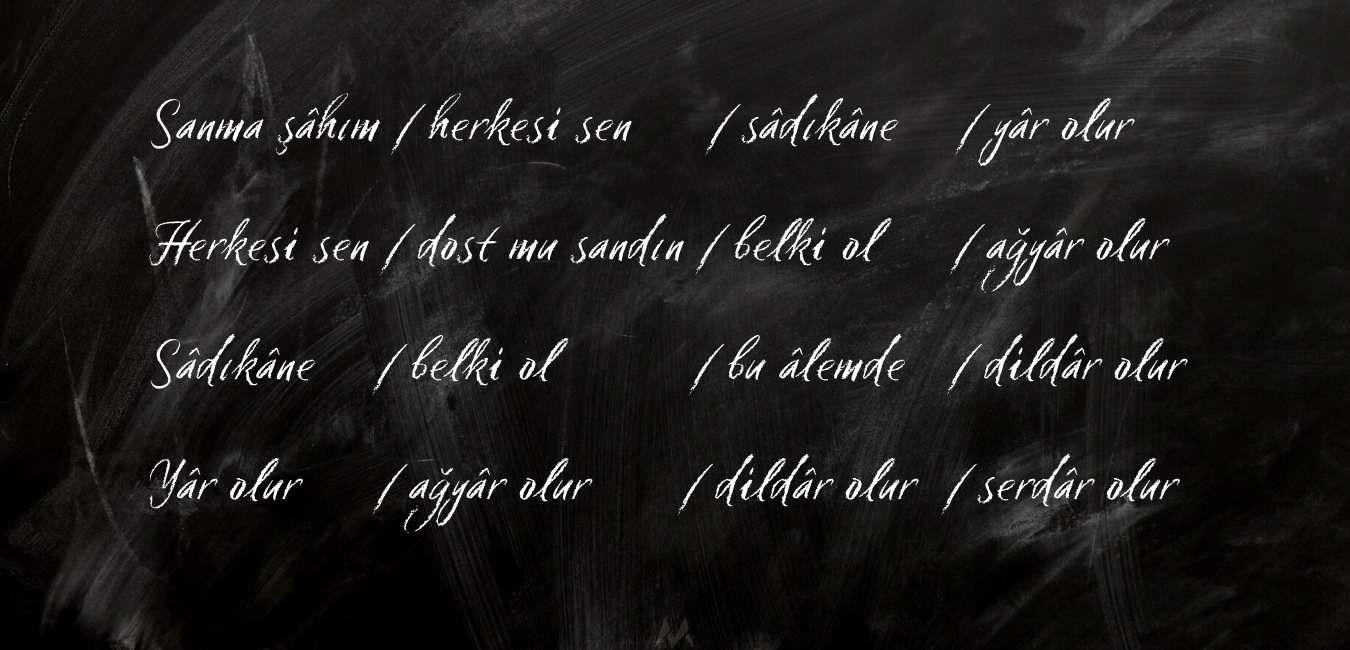 Sanma şâhım / herkesi sen / sâdıkâne / yâr olur
Herkesi sen / dost mu sandın / belki ol / ağyâr olur
Sâdıkâne / belki ol / bu âlemde / dildâr olur
Yâr olur / ağyâr olur / dildâr olur / serdâr olur